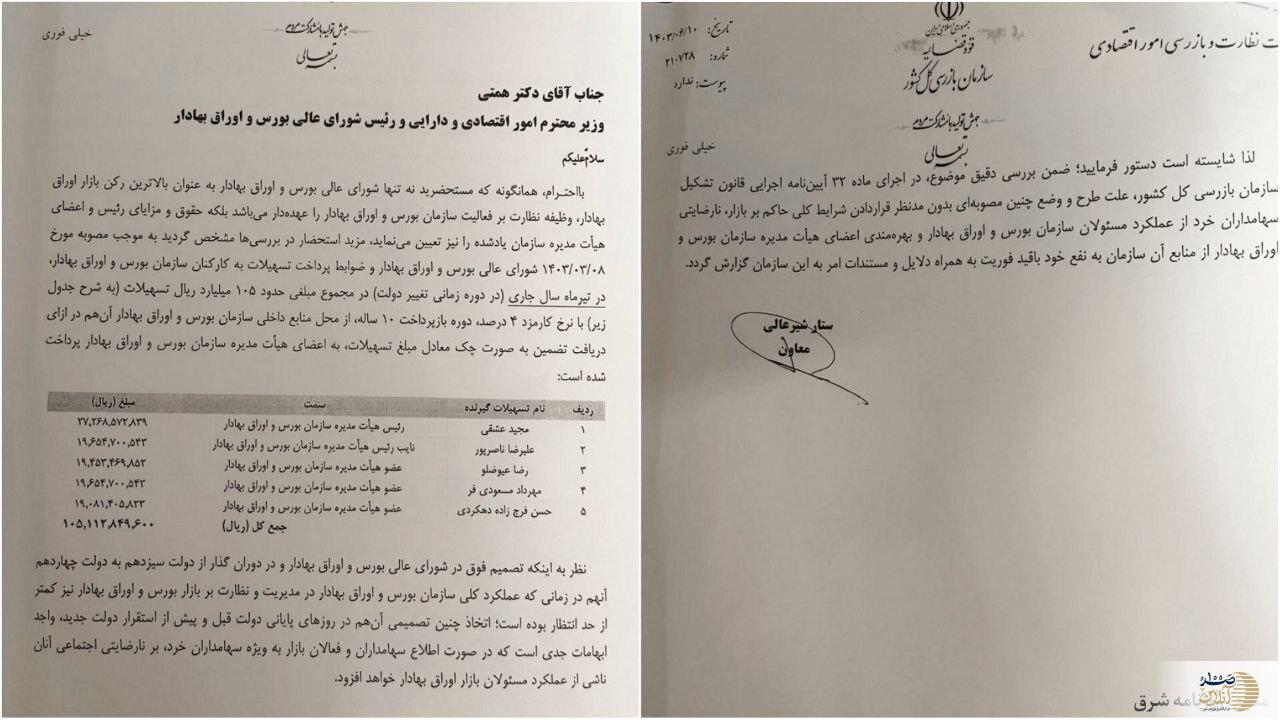 خیلی فوری
جهش تولید با مشارکت مردم
بسمه تعالی
جناب آقای دکتر همتی
وزیر محترم امور اقتصادی و دارایی و رئیس شورای عالی بورس و اوراق بهادار
سلام علیکم
بااحترام، همانگونه که مستحضرید نه تنها شورای عالی بورس و اوراق بهادار به عنوان بالاترین رکن بازار اوراق
بهادار، وظیفه نظارت بر فعالیت سازمان بورس و اوراق بهادار را عهده‌دار می‌باشد بلکه حقوق و مزایای رئیس و اعضای
هیأت مدیره سازمان یادشده را نیز تعیین می‌نماید، مزید استحضار در بررسی‌ها مشخص گردید به موجب مصوبه مورخ
۱۴۰۳/۰۳/۰۸ شورای عالی بورس و اوراق بهادار و ضوابط پرداخت تسهیلات به کارکنان سازمان بورس و اوراق بهادار،
در تیرماه سال جاری (در دوره زمانی تغییر دولت) در مجموع مبلغی حدود ۱۰۵ میلیارد ریال تسهیلات (به شرح جدول
زیر) با نرخ کارمزد ۴ درصد، دوره بازپرداخت ۱۰ ساله، از محل منابع داخلی سازمان بورس و اوراق بهادار آن‌هم در ازای
دریافت تضمین به صورت چک معادل مبلغ تسهیلات، به اعضای هیأت مدیره سازمان بورس و اوراق بهادار پرداخت
شده است:
ردیف نام تسهیلات گیرنده سمت مبلغ (ریال)
۱ مجید عشقی رئیس هیأت مدیره سازمان بورس و اوراق بهادار ۲۷,۲۶۸,۵۷۲,۸۳۹
۲ علیرضا ناصرپور نایب رئیس هیأت مدیره سازمان بورس و اوراق بهادار ۱۹,۶۵۴,۷۰۰,۵۴۳
۳ رضا عیوضلو عضو هیأت مدیره سازمان بورس و اوراق بهادار ۱۹,۴۵۳,۴۶۹,۸۵۲
۴ مهرداد مسعودی فر عضو هیأت مدیره سازمان بورس و اوراق بهادار ۱۹,۶۵۴,۷۰۰,۵۴۳
۵ حسن فرج زاده دهکردی عضو هیأت مدیره سازمان بورس و اوراق بهادار ۱۹,۰۸۱,۴۰۵,۸۲۳
جمع کل (ریال) ۱۰۵,۱۱۲,۸۴۹,۶۰۰
نظر به اینکه تصمیم فوق در شورای عالی بورس و اوراق بهادار و در دوران گذار از دولت سیزدهم به دولت چهاردهم
آنهم در زمانی که عملکرد کلی سازمان بورس و اوراق بهادار در مدیریت و نظارت بر بازار بورس و اوراق بهادار نیز کمتر
از حد انتظار بوده است؛ اتخاذ چنین تصمیمی آن‌هم در روزهای پایانی دولت قبل و پیش از استقرار دولت جدید، واجد
ابهامات جدی است که در صورت اطلاع سهامداران و فعالان بازار به ویژه سهامداران خرد، بر نارضایتی اجتماعی آنان
ناشی از عملکرد مسئولان بازار اوراق بهادار خواهد افزود.
جمهوری اسلامی ایران
قوه قضائیه
سازمان بازرسی کل کشور
نظارت و بازرسی امور اقتصادی
تاریخ: ۱۴۰۳/۰۶/۱۰
شماره: ۲۱۰۷۲۸
پیوست: ندارد
جهش تولید با مشارکت مردم
بسمه تعالی
خیلی فوری
لذا شایسته است دستور فرمایید؛ ضمن بررسی دقیق موضوع، در اجرای ماده ۳۲ آیین‌نامه اجرایی قانون تشکیل
سازمان بازرسی کل کشور، علت طرح و وضع چنین مصوبه‌ای بدون مدنظر قراردادن شرایط کلی حاکم بر بازار، نارضایتی
سهامداران خرد از عملکرد مسئولان سازمان بورس و اوراق بهادار و بهره‌مندی اعضای هیأت مدیره سازمان بورس و
اوراق بهادار از منابع آن سازمان به نفع خود باقید فوریت به همراه دلایل و مستندات امر به این سازمان گزارش گردد.
ستار شیرعالی
معاون
صدآنلاین
شرق